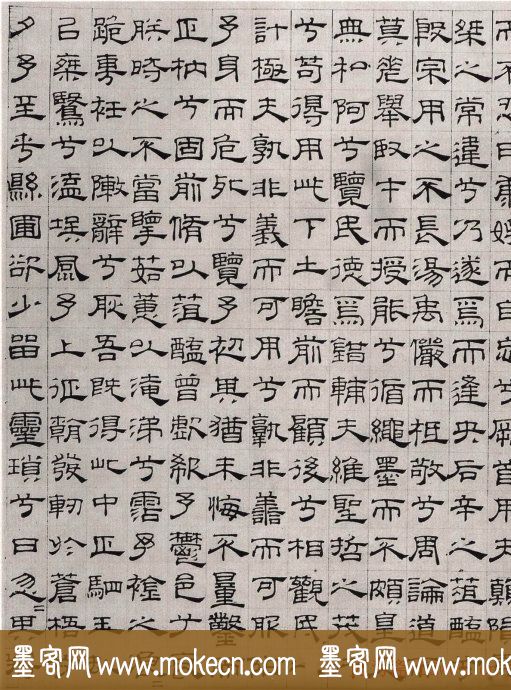 而不忍日康娛而自忘兮厥首用夫顛隕
桀之常違兮乃遂焉而逢央后辛之菹醢
殷宗用之不長湯禹儼而祗敬兮周論道
莫差舉臤才而授能兮循繩墨而不頗皇
無私阿兮覽民德焉錯輔夫維聖哲之茂
兮苟得用此下土瞻前而顧後兮相觀民
計極夫孰非義而可用兮孰非善而可服
予身而危死兮覽予初其猶未悔不量鑿
正枘兮固前脩以菹醢曾歔欷予鬱邑兮
朕時之不當擥茹蕙以淹涕兮霑予襟之
跪尃衽以敶辭兮耿吾既得此中正駟玉
以椉鷖兮溘埃風予上征朝發軔於蒼梧
夕予至乎縣圃欲少留此靈瑣兮日忽其
墨客网 www.mokecn.com 墨客网 www.mokecn.com